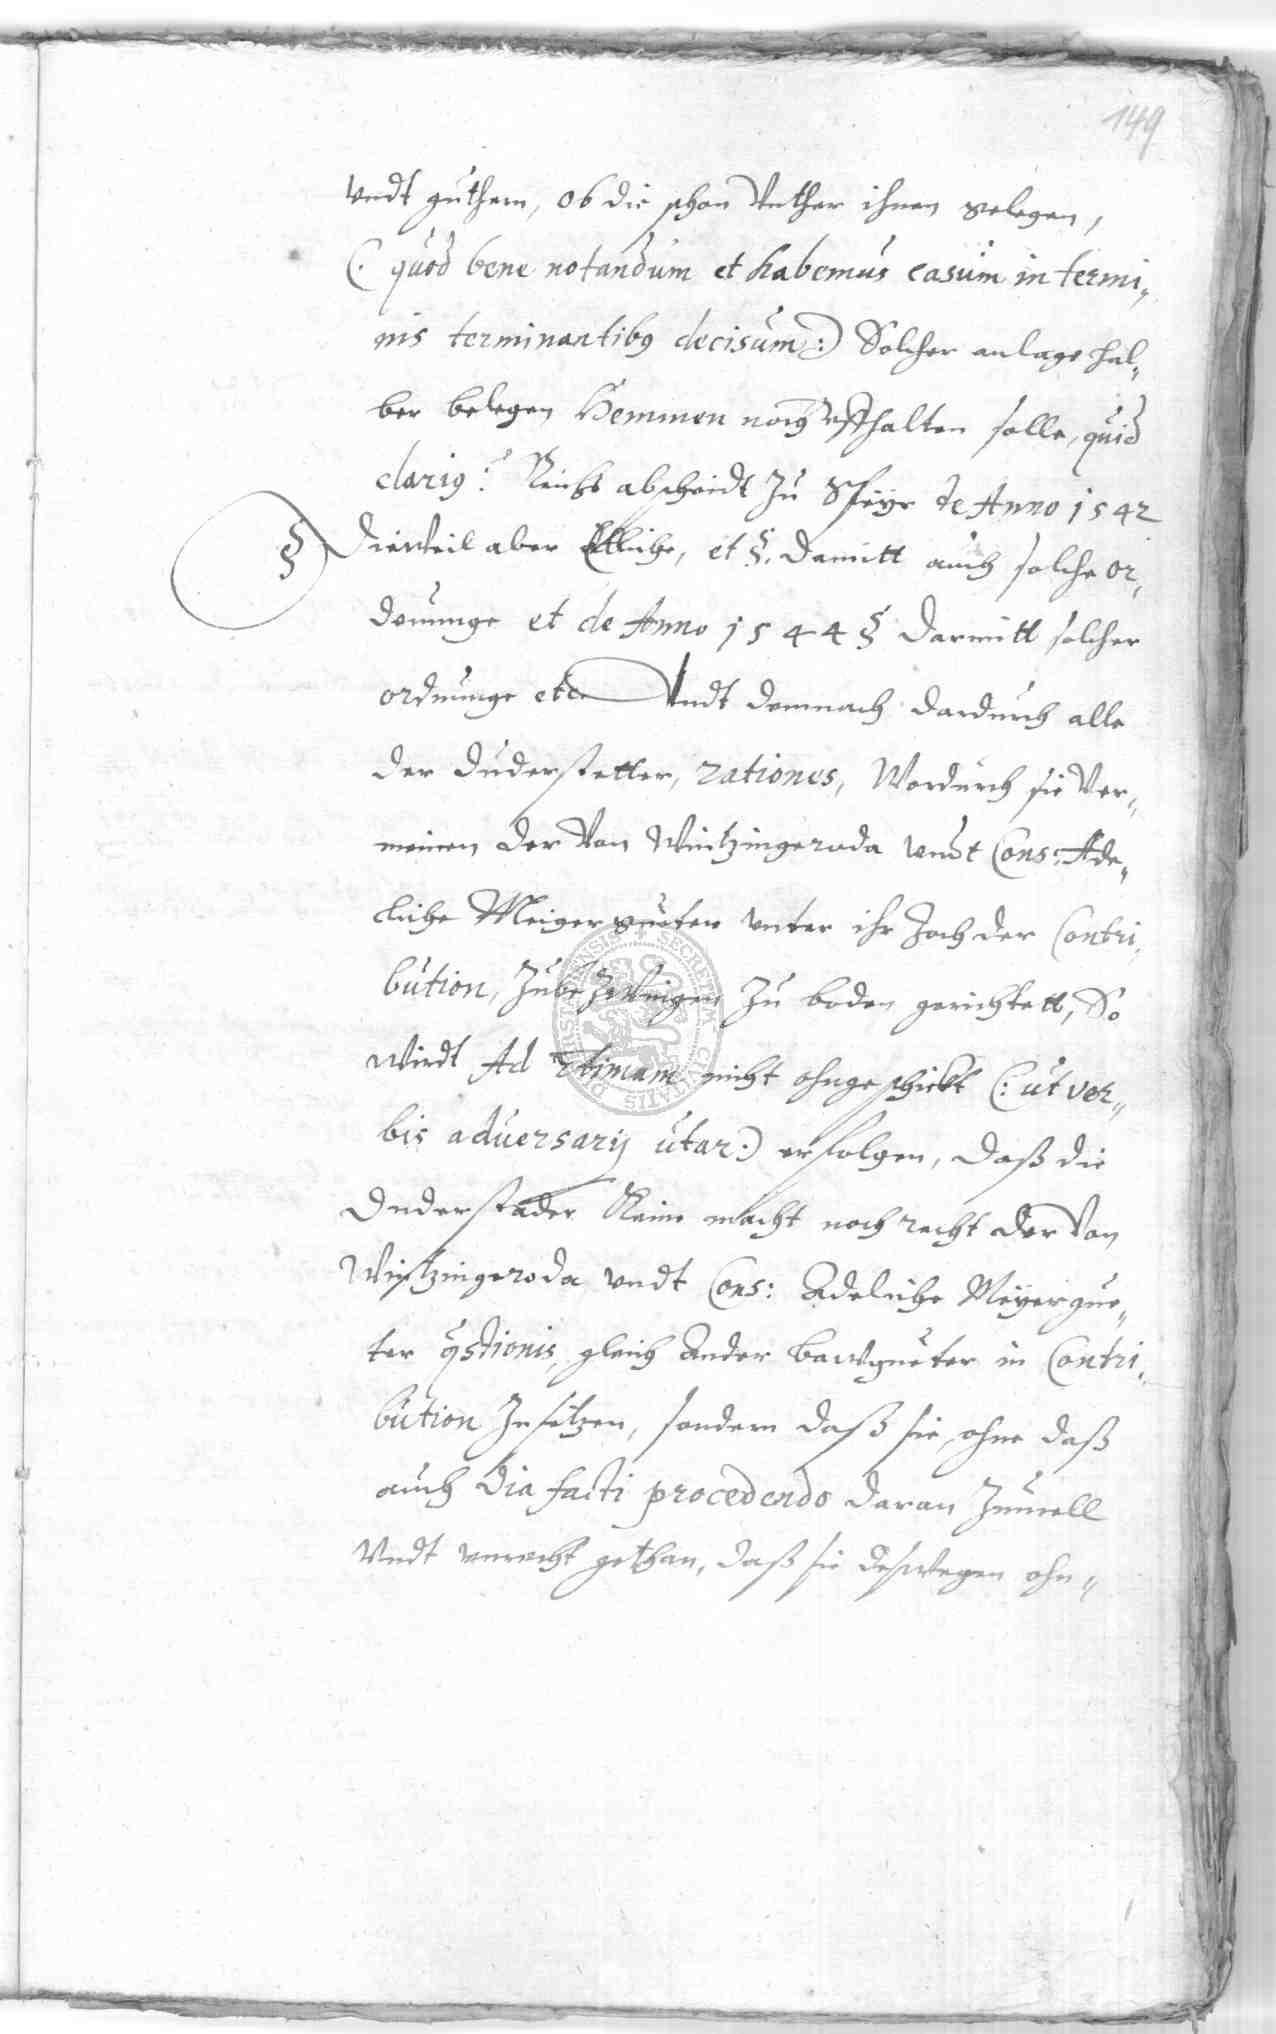 149
vndt guthern, ob die schon Vnther ihnen gelegen,
(: quod bene notandum et habemus casum in termi„
nis terminantibg decisum:) Solcher anlage hal„
ber belegen Hemmen noch Uffhalten solle, quid
clarig? Reichs abscheidt zu Speyr de Anno 1542
§ Dieweil aber Etliche, et §. damitt auch solche or„
denunge et de Anno 1544 § Darmitt solcher
ordnunge etc Vndt demnach dardurch alle
der Duderstetter, rationes, Wordurch sie Ver„
meinen der Von Wintzingeroda vndt Cons: Ade„
liche Meiger gueter vnter ihr Joch der Contri„
bution, Zube Zwingen Zu boden gerichtett, So
wirdt Ad ultimam nicht ohngeschickt (: ut ver„
bis adversarij utar:) erfolgen, daß die
Duderstader Keine macht noch recht der Von
Wintzingeroda vndt Cons: Adeliche Meyergue„
ter qstionis, gleich Ander bawgueter in Contri„
bution Zusetzen, sondern daß sie, ohne daß
auch Via facti procedendo daran Zuuiell
Vndt vnrecht gethan, daß sie deswegen ohn„
SECRETUM CIVITATIS DUERSTADENSIS